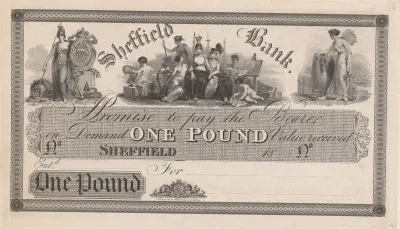 Sheffield Bank.
I Promise to pay the Bearer
on Demand ONE POUND Value received
No SHEFFIELD 18 No
Ent.d For
One Pound